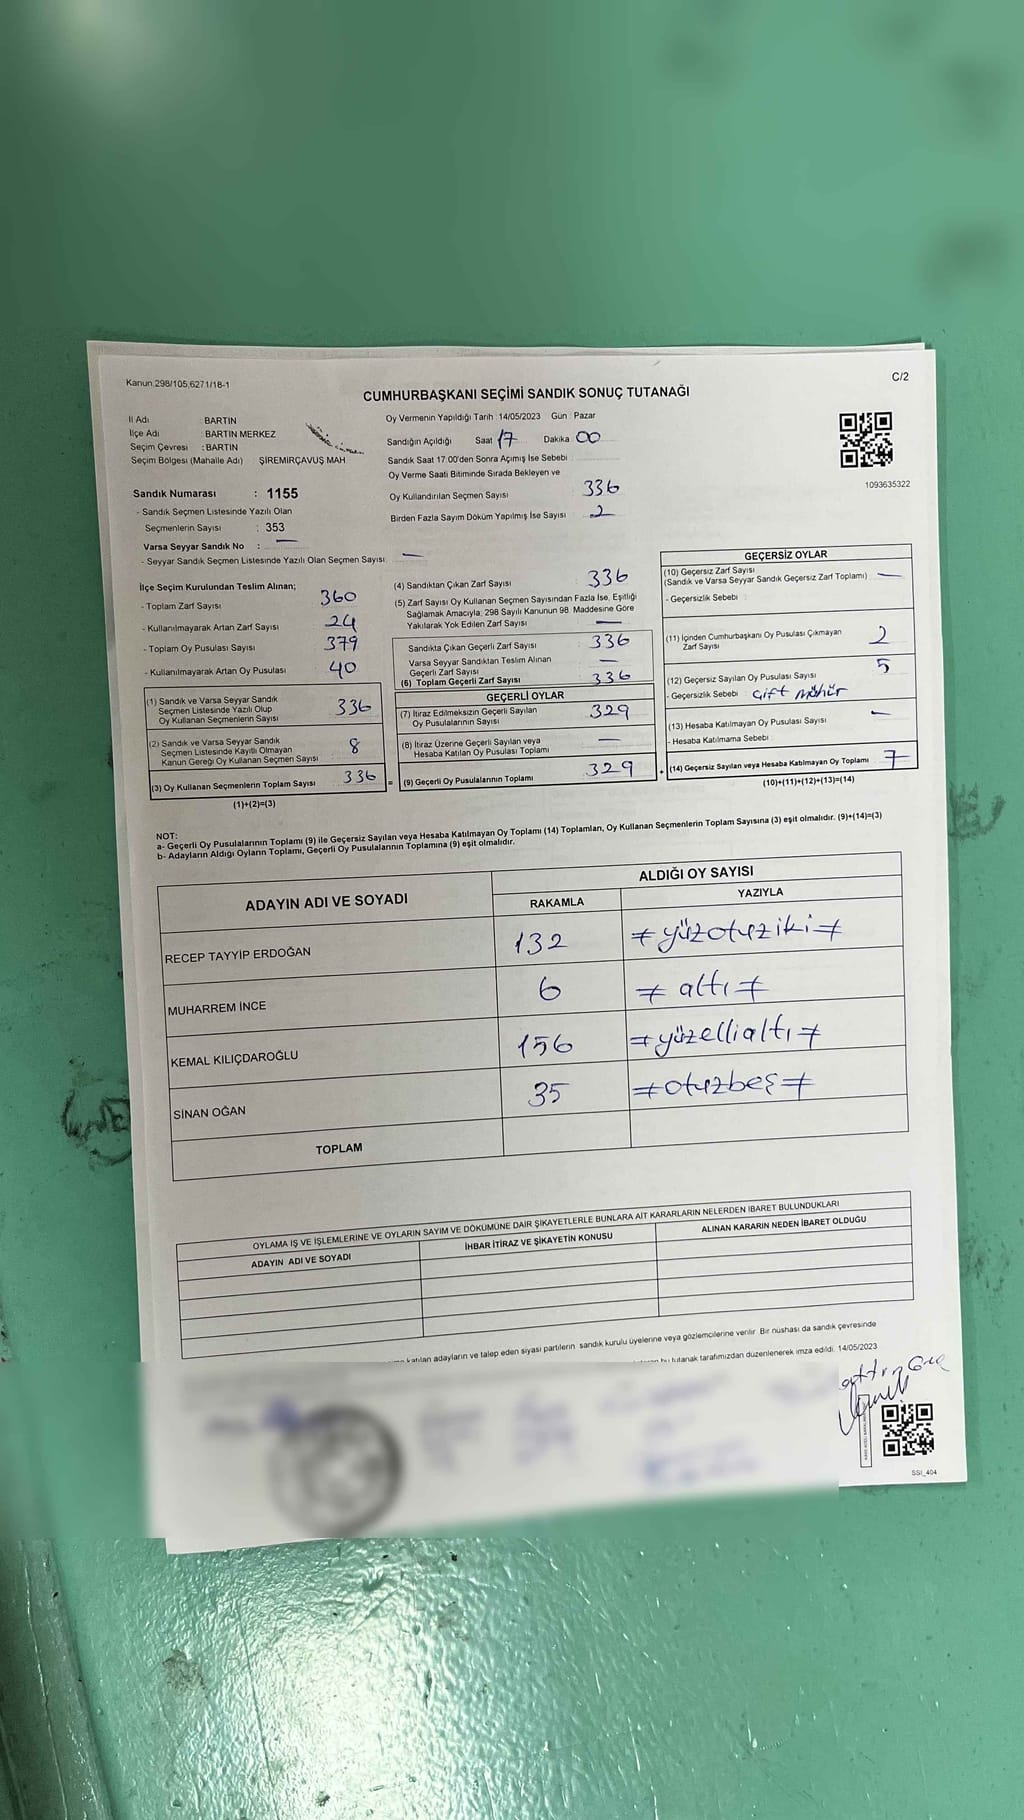 Kanun.298/105,6271/18-1
C/2
CUMHURBAŞKANI SEÇİMİ SANDIK SONUÇ TUTANAĞI
İl Adı : BARTIN
İlçe Adı : BARTIN MERKEZ
Seçim Çevresi : BARTIN
Seçim Bölgesi (Mahalle Adı) ŞİREMİRÇAVUŞ MAH
Oy Vermenin Yapıldığı Tarih :14/05/2023 Gün : Pazar
Sandığın Açıldığı Saat 17 Dakika 00
Sandık Saat 17:00'den Sonra Açımış İse Sebebi
Oy Verme Saati Bitiminde Sırada Bekleyen ve
Oy Kullandırılan Seçmen Sayısı 336
Birden Fazla Sayım Döküm Yapılmış İse Sayısı 2
1093635322
Sandık Numarası : 1155
- Sandık Seçmen Listesinde Yazılı Olan
Seçmenlerin Sayısı : 353
Varsa Seyyar Sandık No : —
- Seyyar Sandık Seçmen Listesinde Yazılı Olan Seçmen Sayısı —
İlçe Seçim Kurulundan Teslim Alınan;
- Toplam Zarf Sayısı 360
- Kullanılmayarak Artan Zarf Sayısı 24
- Toplam Oy Pusulası Sayısı 379
- Kullanılmayarak Artan Oy Pusulası 40
(1) Sandık ve Varsa Seyyar Sandık
Seçmen Listesinde Yazılı Olup
Oy Kullanan Seçmenlerin Sayısı 336
(2) Sandık ve Varsa Seyyar Sandık
Seçmen Listesinde Kayıtlı Olmayan
Kanun Gereği Oy Kullanan Seçmen Sayısı 8
(3) Oy Kullanan Seçmenlerin Toplam Sayısı 336
(1)+(2)=(3)
(4) Sandıktan Çıkan Zarf Sayısı 336
(5) Zarf Sayısı Oy Kullanan Seçmen Sayısından Fazla İse, Eşitliği
Sağlamak Amacıyla, 298 Sayılı Kanunun 98. Maddesine Göre
Yakılarak Yok Edilen Zarf Sayısı —
Sandıkta Çıkan Geçerli Zarf Sayısı 336
Varsa Seyyar Sandıktan Teslim Alınan
Geçerli Zarf Sayısı —
(6) Toplam Geçerli Zarf Sayısı 336
GEÇERLİ OYLAR
(7) İtiraz Edilmeksizin Geçerli Sayılan
Oy Pusulalarının Sayısı 329
(8) İtiraz Üzerine Geçerli Sayılan veya
Hesaba Katılan Oy Pusulası Toplamı —
= (9) Geçerli Oy Pusulalarının Toplamı 329
GEÇERSİZ OYLAR
(10) Geçersiz Zarf Sayısı
(Sandık ve Varsa Seyyar Sandık Geçersiz Zarf Toplamı) —
- Geçersizlik Sebebi :
(11) İçinden Cumhurbaşkanı Oy Pusulası Çıkmayan
Zarf Sayısı 2
(12) Geçersiz Sayılan Oy Pusulası Sayısı 5
- Geçersizlik Sebebi : Çift mühür
(13) Hesaba Katılmayan Oy Pusulası Sayısı —
- Hesaba Katılmama Sebebi :
+ (14) Geçersiz Sayılan veya Hesaba Katılmayan Oy Toplamı 7
(10)+(11)+(12)+(13)=(14)
NOT:
a- Geçerli Oy Pusulalarının Toplamı (9) ile Geçersiz Sayılan veya Hesaba Katılmayan Oy Toplamı (14) Toplamları, Oy Kullanan Seçmenlerin Toplam Sayısına (3) eşit olmalıdır. (9)+(14)=(3)
b- Adayların Aldığı Oyların Toplamı, Geçerli Oy Pusulalarının Toplamına (9) eşit olmalıdır.
ADAYIN ADI VE SOYADI
ALDIĞI OY SAYISI
RAKAMLA YAZIYLA
RECEP TAYYİP ERDOĞAN 132 ≠ yüzotuziki ≠
MUHARREM İNCE 6 ≠ altı ≠
KEMAL KILIÇDAROĞLU 156 ≠ yüzellialtı ≠
SİNAN OĞAN 35 ≠ otuzbeş ≠
TOPLAM
OYLAMA İŞ VE İŞLEMLERİNE VE OYLARIN SAYIM VE DÖKÜMÜNE DAİR ŞİKAYETLERLE BUNLARA AİT KARARLARIN NELERDEN İBARET BULUNDUKLARI
ADAYIN ADI VE SOYADI İHBAR İTİRAZ VE ŞİKAYETİN KONUSU ALINAN KARARIN NEDEN İBARET OLDUĞU
katılan adayların ve talep eden siyasi partilerin sandık kurulu üyelerine veya gözlemcilerine verilir. Bir nüshası da sandık çevresinde
bu tutanak tarafımızdan düzenlenerek imza edildi. 14/05/2023
SSI_404